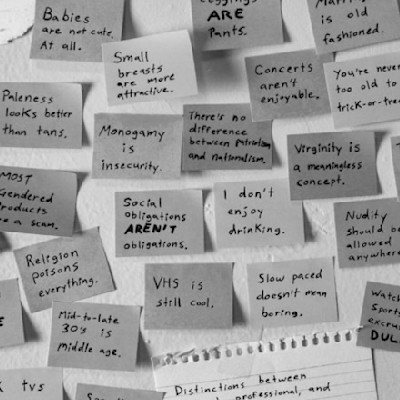 Babies
are not cute.
At all.
ARE
Pants.
is old
fashioned.
Small
breasts
are more
attractive.
Concerts
aren't
enjoyable.
You're never
too old to
trick-or-trea
Paleness
looks better
than tans.
Monogamy
is
insecurity.
There's no
difference
between Patriotism
and nationalism.
Virginity is
a meaningless
concept.
MOST
Gendered
Products
are a scam.
Social
obligations
AREN'T
obligations.
I don't
enjoy
drinking.
Nudity
should be
allowed
anywhere
Religion
poisons
everything.
VHS is
still cool.
Slow paced
doesn't mean
boring.
Watch
Sports
excruc
DUL
Mid-to-late
30's is
middle age.
TVs
Distinctions between
professional, and